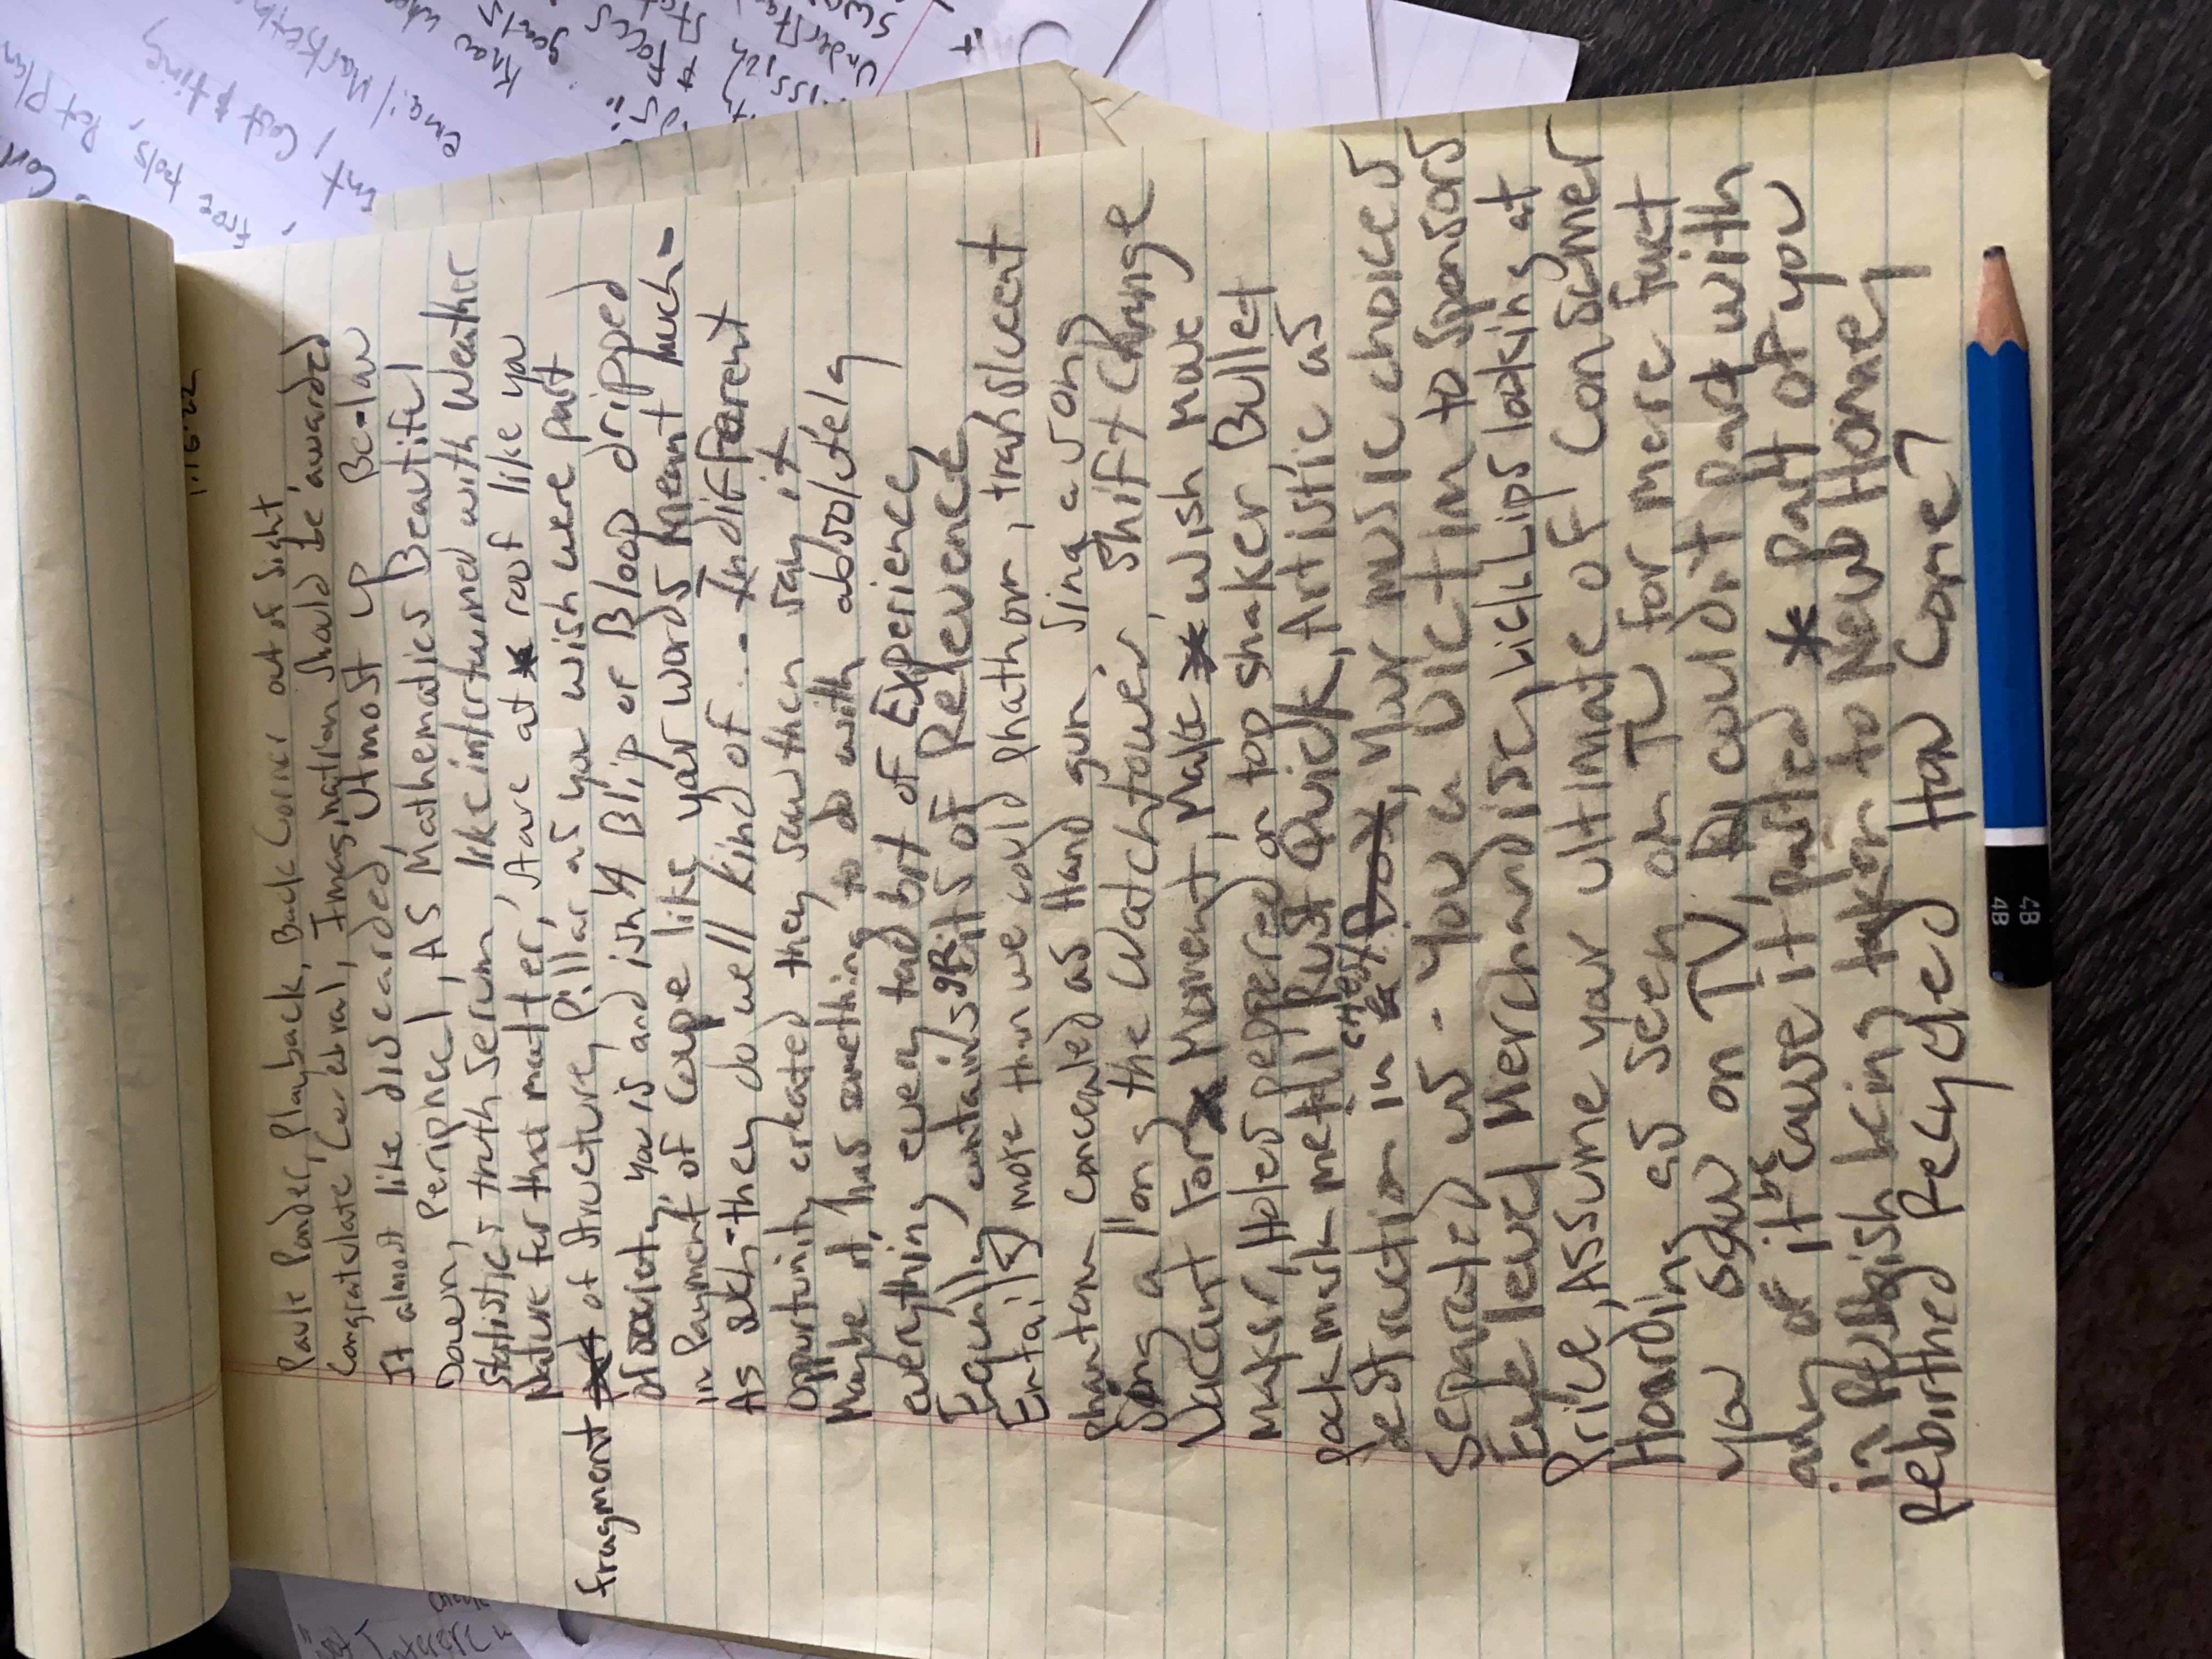 1.16.22
Pause Ponder, Playback, Back Corner out of sight
Congratulate Cerebral, Imagination should be awarded
It almost like discarded, Utmost up Be-low
Down, Peripheel, AS Mathematics Beautiful
Statistics truth serum, like intertwined with Weather
Nature for that matter, Aare at roof like you
fragment of structure, Pillar as you wish were part
of society, you is and ish y Blip or Bloop dripped
in Payment of Coupe like your words Meant much-
As such-they do well kind of... Indifferent
Opportunity created they saw then say it
Maybe it, has something to do with absolutely
everything every tad bit of Experience
Equally contains spits of Relevence
Entail(s) more than we could phathom, translucent
Phantom concealed as Hand gun Sing a song
Song a long the Watchtower, Shift Change
Vacant for Moment, Make wish Move
Maker, Holes peppered on top shaker Bullet
Pock mark metall Rust Quick, Artistic as
destruction in "Hex", Your music choices
Separated us - You a victim to Sponsors
Eye level Merchandise, lick Lips looking at
Price, Assume your ultimate of Consumer
Hoarding as seen on TV for mere fact
you saw on TV, couldnt part with
any of it be cause it parted Part of you
in Rubbish being taken to New Home,
Rebirthed Recycled How Come?
4B
4B
free tools,
Cost & time
email Marketing
Know
goals